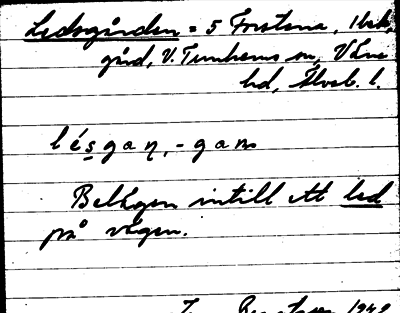 Ledsgården = 5 Forstena, 1 bek.
gård, V. Tunhems sn, Väne
hd, Älvsb. l.
lésgaɳ, -gam
Belägen intill ett led
på vägen.
1949